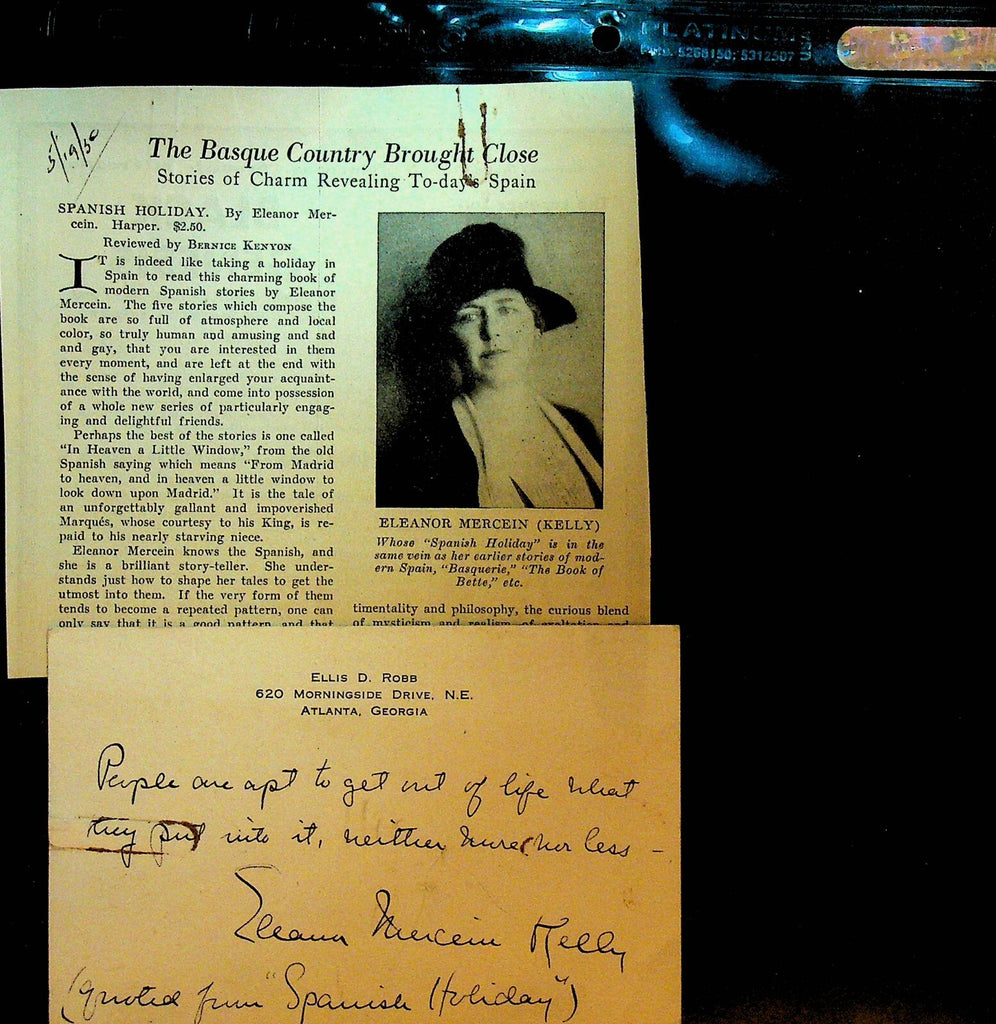 PLATINUM
5266150; 5312507
5/19/30
The Basque Country Brought Close
Stories of Charm Revealing To-day's Spain
SPANISH HOLIDAY. By Eleanor Mer-
cein. Harper. $2.50.
Reviewed by BERNICE KENYON
IT is indeed like taking a holiday in
Spain to read this charming book of
modern Spanish stories by Eleanor
Mercein. The five stories which compose the
book are so full of atmosphere and local
color, so truly human and amusing and sad
and gay, that you are interested in them
every moment, and are left at the end with
the sense of having enlarged your acquaint-
ance with the world, and come into possession
of a whole new series of particularly engag-
ing and delightful friends.
Perhaps the best of the stories is one called
"In Heaven a Little Window," from the old
Spanish saying which means "From Madrid
to heaven, and in heaven a little window to
look down upon Madrid." It is the tale of
an unforgettably gallant and impoverished
Marqués, whose courtesy to his King, is re-
paid to his nearly starving niece.
Eleanor Mercein knows the Spanish, and
she is a brilliant story-teller. She under-
stands just how to shape her tales to get the
utmost into them. If the very form of them
tends to become a repeated pattern, one can
only say that it is a good pattern, and that
ELEANOR MERCEIN (KELLY)
Whose "Spanish Holiday" is in the
same vein as her earlier stories of mod-
ern Spain, "Basquerie," "The Book of
Bette," etc.
timentality and philosophy, the curious blend
of mysticism and realism, of exaltation and
ELLIS D. ROBB
620 MORNINGSIDE DRIVE, N.E.
ATLANTA, GEORGIA
People are apt to get out of life what
they put into it, neither more nor less –
Eleanor Mercein Kelly
(quoted from "Spanish Holiday")